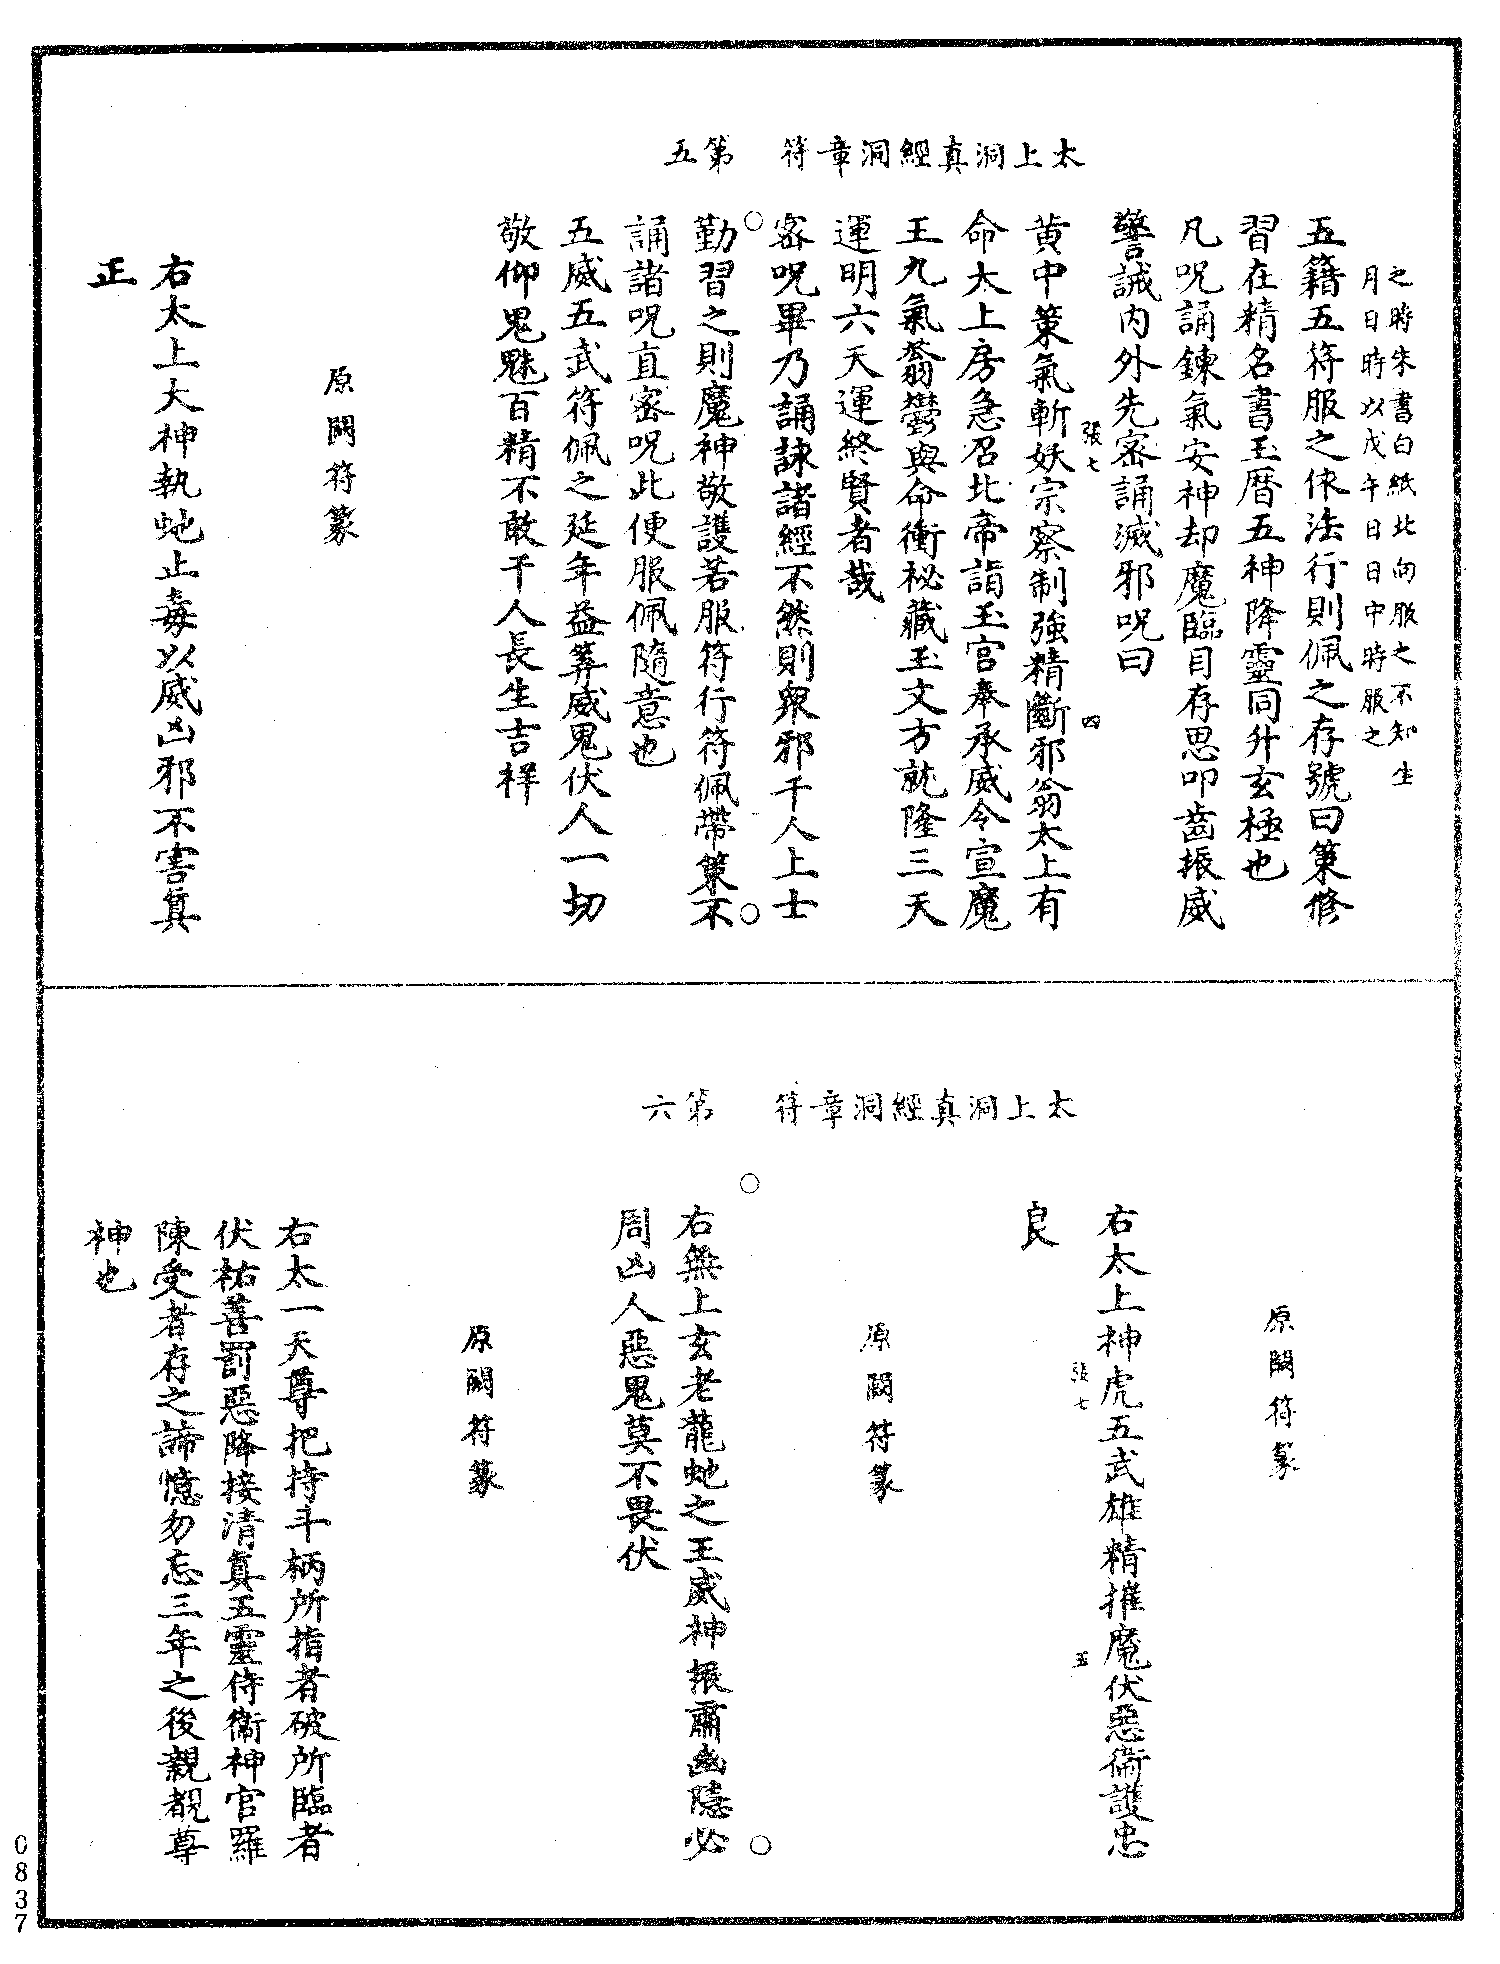 太上洞真經洞章符　第五
之時朱書白紙北向服之不知生
月日時以戊午日日中時服之
五籍五符服之依法行則佩之存號曰策修
習在精名書玉曆五神降靈同升玄極也
凡呪誦鍊氣安神却魔臨目存思叩齒振威
警誡内外先密誦滅邪呪曰
張七　四
黃中策氣斬妖宗察制強精斷邪翁太上有
命太上房急召北帝詣玉宮奉承威令宣魔
王九氣蓊鬱與命衝祕藏玉文方就隆三天
運明六天運終賢者哉
密呪畢乃誦詠諸經不然則衆邪干人上士
勤習之則魔神敬護若服符行符佩帶策不
誦諸呪直密呪此便服佩隨意也
五威五武符佩之延年益筭威鬼伏人一切
敬仰鬼魅百精不敢干人長生吉祥
原闕符篆
右太上大神執虵止毒以威凶邪不害真
正
太上洞真經洞章符　第六
原闕符篆
右太上神虎五武雄精摧魔伏惡衞護忠
張七　五
良
原闕符篆
右無上玄老龍虵之王威神振肅幽隱必
周凶人惡鬼莫不畏伏
原闕符篆
右太一天尊把持斗柄所指者破所臨者
伏祐善罰惡降接清真五靈侍衞神官羅
陳受者存之諦憶勿忘三年之後親覩尊
神也
0837